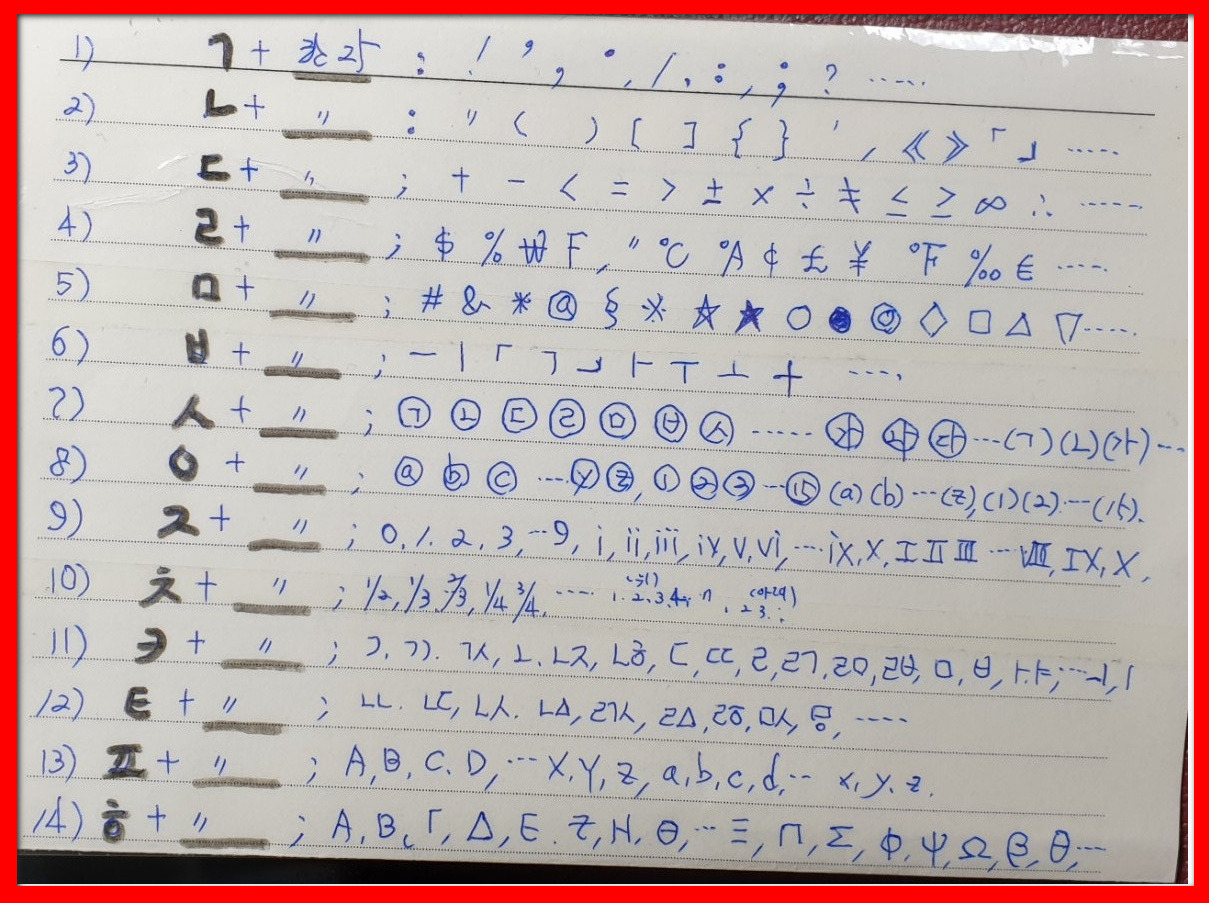 1) ㄱ + 한자 : ! ' , · , / , : , ; ? .....
2) ㄴ + 〃 : " ( ) [ ] { } ' , 《 》 「 」 .....
3) ㄷ + 〃 ; + - < = > ± × ÷ ≠ ≤ ≥ ∞ ∴ .....
4) ㄹ + 〃 ; $ % ₩ F , " ℃ Å ¢ £ ¥ ℉ ‰ € .....
5) ㅁ + 〃 ; # & * @ § ※ ☆ ★ ○ ● ◎ ◇ □ △ ▽.....
6) ㅂ + 〃 ; ─ │ ┌ ┐ ┘ ├ ┬ ┴ ┼ ....
7) ㅅ + 〃 ; ㉠ ㉡ ㉢ ㉣ ㉤ ㉥ ㉦ ..... ㉮ ㉯ ㉰ ...(ㄱ)(ㄴ)(가)...
8) ㅇ + 〃 ; ⓐ ⓑ ⓒ ...ⓨ ⓩ, ① ② ③ ...⑮ (a)(b) ...(z),(1)(2)...(15).
9) ㅈ + 〃 ; 0, 1. 2, 3, ...9, i, ii, iii, iv, v, vi, ...ix, x, Ⅰ Ⅱ Ⅲ ... Ⅷ, Ⅸ, Ⅹ,
10) ㅊ + 〃 ; 1/2, 1/3, 2/3, 1/4 3/4, ..... 1. 2. 3. 4. n , 2 3 . .
11) ㅋ + 〃 ; ㄱ, ㄲ. ㄳ, ㄴ. ㄵ, ㄶ, ㄷ, ㄸ, ㄹ, ㄺ, ㄻ, ㄼ, ㅁ, ㅂ, ㅏ. ㅑ, ...ㅢ, ㅣ
12) ㅌ + 〃 ; ㅥ. ㅦ, ㅧ. ㅨ, ㅩ, ㅬ, ㅭ, ㅯ, ㅱ, ....
13) ㅍ + 〃 ; A, B, C. D, ... X, Y, Z, a, b, c, d, .. x, y, z.
14) ㅎ + 〃 ; Α, Β, Γ, Δ, Ε. Ζ, Η, Θ, .. Ξ, Π, Σ, Φ, Ψ, Ω, β, θ, ...